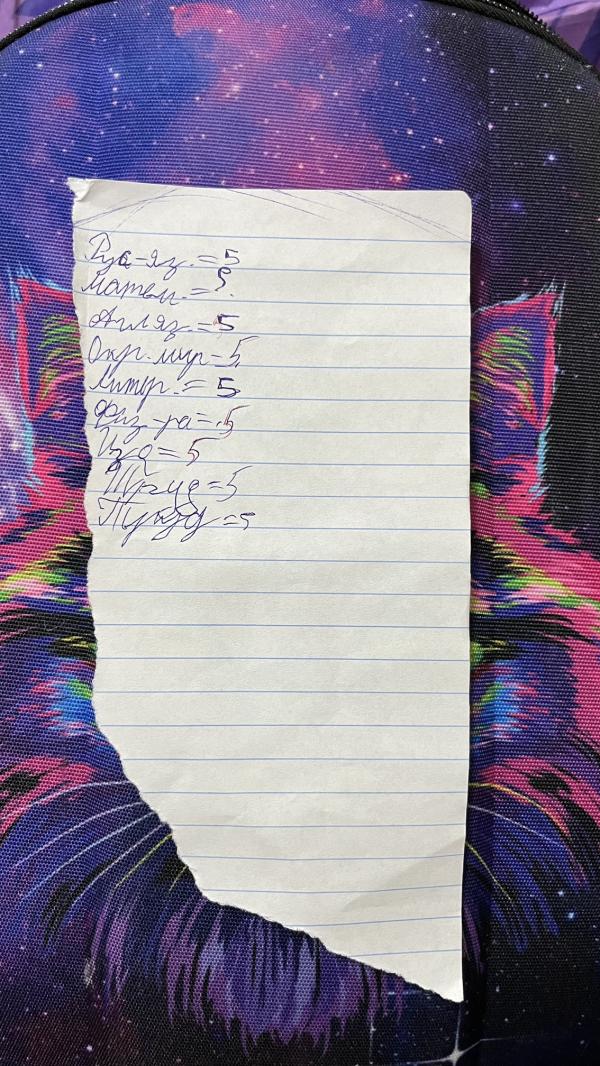 Рус-яз. = 5
матем. = 5.
Англ яз = 5
Окр. мир - 5
литер. = 5
физ-ра = 5
Изо = 5
Труд = 5
= 5